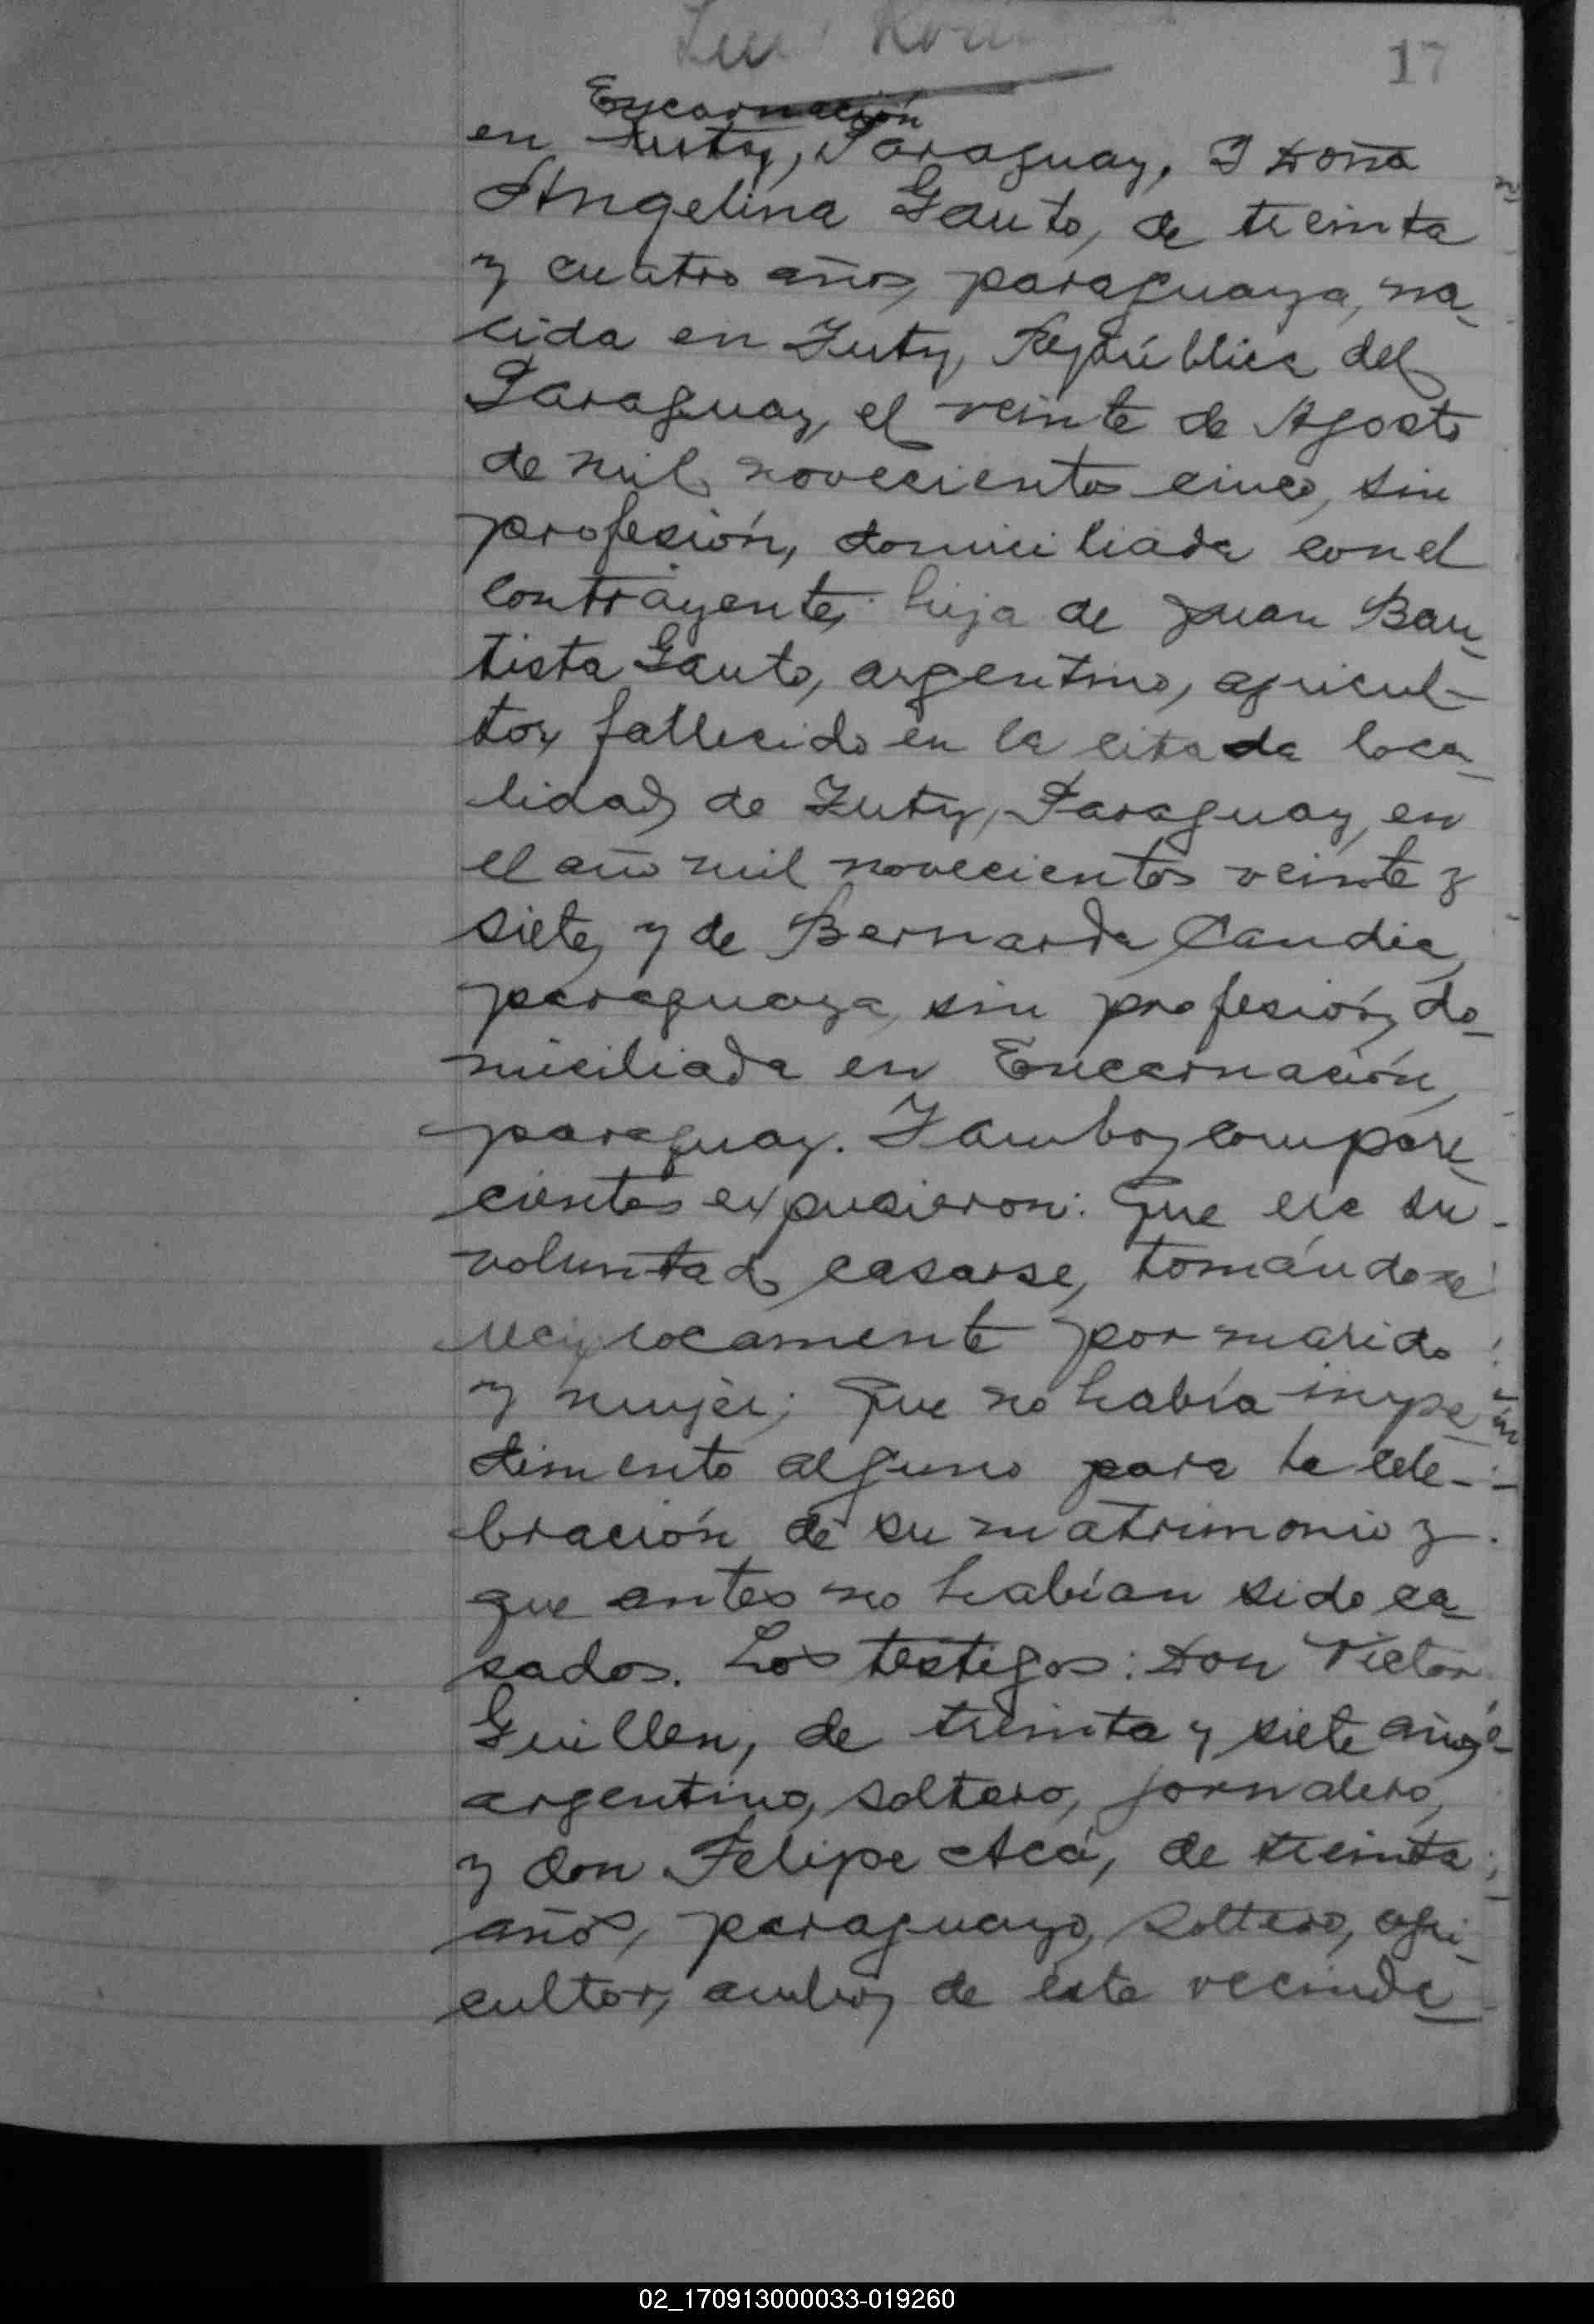 17
Encarnación
en Yuty, Paraguay, Y Doña
Angelina Gauto, de treinta
y cuatro años, paraguaya, na_
cida en Yuty, República del
Paraguay, el veinte de Agosto
de mil novecientos cinco, sin
profesión, domiciliada con el
contrayente; hija de Juan Bau_
tista Gauto, argentino, agricul-
tor, fallecido en la citada loca_
lidad de Yuty, Paraguay, en
el año mil novecientos veinte y
siete, y de Bernarda Candia,
paraguaya, sin profesión, do_
miciliada en Encarnación,
paraguay. Y ambos compare_
cientes expusieron: que era su
voluntad casarse, tomándose
reciprocamente por marido
y mujer; que no había impe_
dimento alguno para la cele-
bración de su matrimonio y
que antes no habían sido ca_
sados. Los testigos: Don Victor
Guillen, de treinta y siete años,
argentino, soltero, jornalero,
y don Felipe Acá, de treinta
años, paraguayo, soltero, agri_
cultor, ambos de este vecinda_
02_170913000033-019260